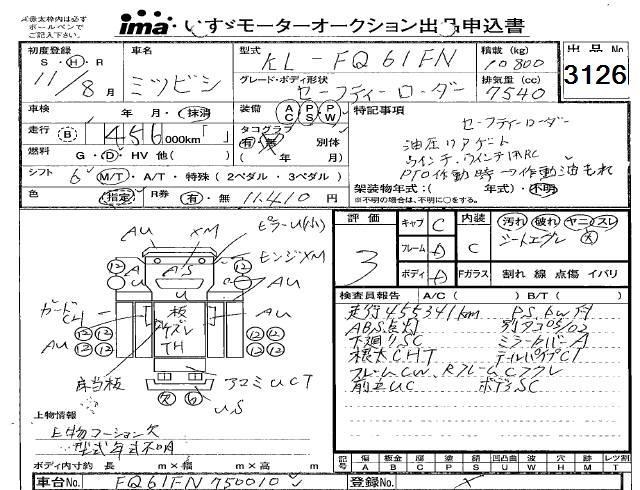 ※赤太枠内は必ず
ボールペンで
ご記入下さい。
ima・いすゞモーターオークション出品申込書
初度登録
S・H・R
11/8月
車名
ミツビシ
型式
KL-FQ61FN
積載 (kg)
10800
グレード・ボディ形状
セーフティーローダー
排気量 (cc)
7540
出品No
3126
車検
年 月・抹消
装備
AC PS PW
走行 B 456 000km「 」
タコグラフ
有・無 別体
( 年 月)
燃料
G・D・HV 他( )
シフト
6 M/T・A/T・特殊 (2ペダル・3ペダル)
色
(指定)
R券
有・無 11.410円
特記事項
セーフティーローダー
油圧リアゲート
ウインチ・ウインチ用RC
PTO作動時→作動油もれ
架装物年式:( 年式)・不明
※不明の場合は、不明に○をする。
評価
3
キャブ C
フレーム D
ボディ D
内装
C
汚れ 破れ ヤニ スレ
シートエアレ 大
Fガラス
割れ 線 点傷 イバリ
検査員報告 A/C( ) B/T( )
走行455341km P.S. bw下A
ABS点灯 別タコ05/02
下廻りSC ミラーカバーA
根太CHT テールパイプCT
フレームCW、RフレームCアフレ
前立UC ボデSC
AU
XM
ピラーU(小)
ヒンジXM
AS
U
ガード
C4
板
ズレ
TH
AU
AU
AU
床当板
アコミUCT
US
欠
6
上物情報
上物コーション欠
型式年式不明
ボディ内寸約 長 m×幅 m×高 m
記号
傷 A
板金 B
腐 C
塗 P
錆 S
凹凸曲 U
波 W
穴 H
跡 M
レツ割 T
車台No. FQ61FN750010
登録No.